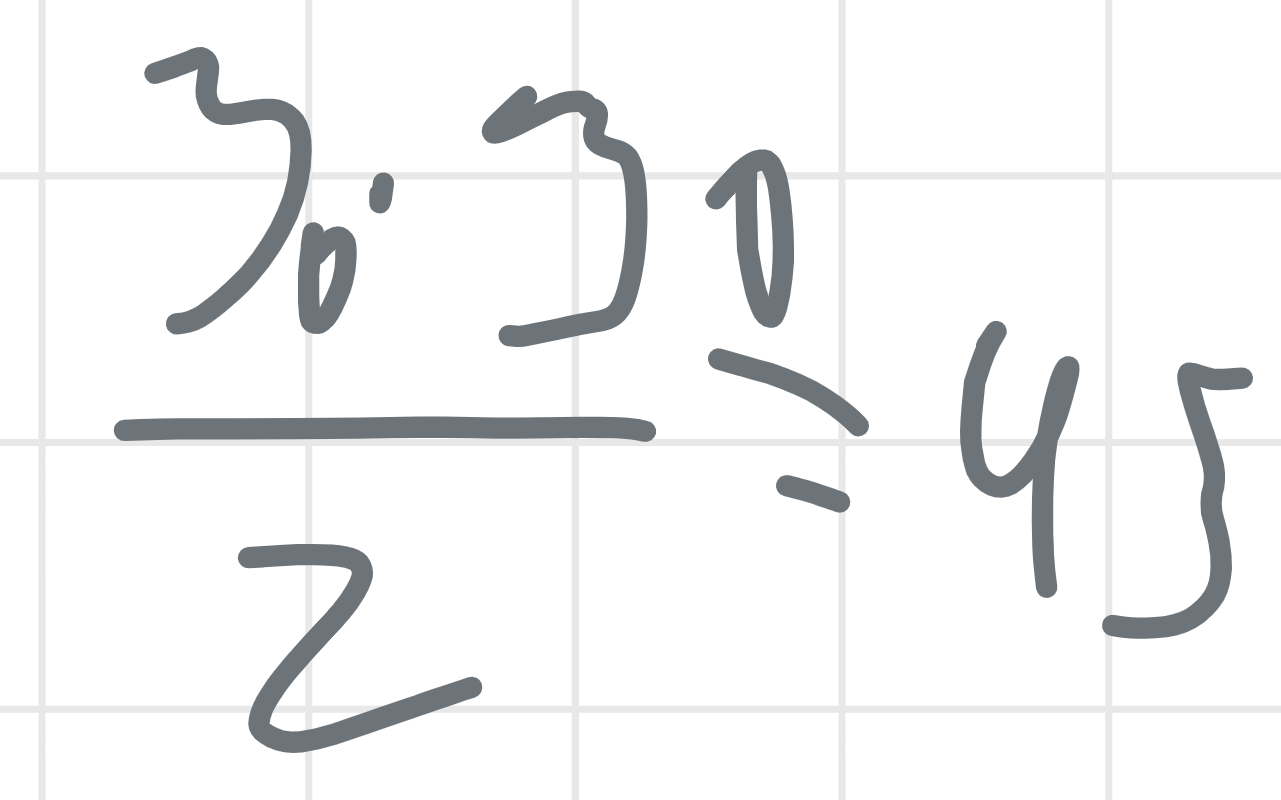 30·30
2
= 45